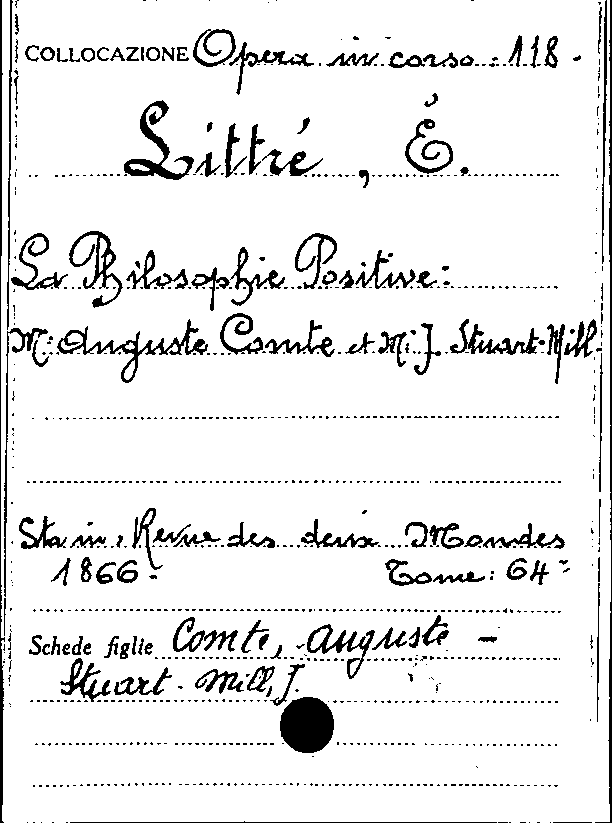 COLLOCAZIONE Opera in corso : 118 -
Littré , É.
La Philosophie Positive :
Mr. Auguste Comte et Mr. J. Stuart-Mill.
Sta in : Revue des deux Mondes
1866 - Tome : 64 -
Schede figlie Comte, Auguste -
Stuart - Mill, J.